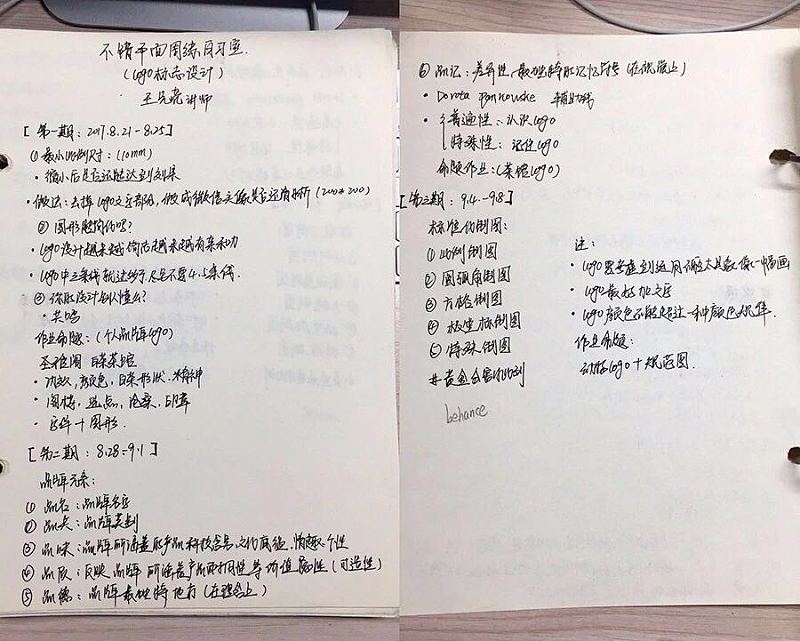 不错平面图练习室.
(logo标志设计)
讲师
[第一期: 2017.8.21-8.25]
① 最小比例尺寸: (10mm)
· 缩小后是否还能达到效果
· 做法: 去掉logo文字部分, 做成微信头像是否还有标价 (200*200)
② 图形能简化吗?
· logo设计越来越简洁越来越有亲和力
· logo中三条线就达到了尽量不要4.5条线.
③ 你的设计别人懂么?
· 共鸣
作业命题: (个人品牌logo)
· 功效, 颜色, 白菜形状, 精神
· 阁楼, 沧桑,
· 字体+图形.
[第二期: 8.28-9.1]
品牌元素:
① 品名: 品牌名字
② 品类: 品牌类别
③ 品味: 品牌所涵盖的产品样格含量、文化商征、情趣、个性
④ 品质: 反映品牌所涵盖产品的耐用性等价值属性 (可造性)
⑤ 品德: 品牌最独特地方 (在理念上)
⑥ 品记: 差异性、最独特的记忆符号 (在视觉上)
· Dorota Pankowska 辅助线
· 普遍性: 认识logo
特殊性: 记住logo
命题作业: (茶馆logo)
[第三期: 9.4-9.8]
标准化制图:
① 比例制图
② 圆弧角制图
③ 方格制图
④ 极坐标制图
⑤ 特殊制图
# 黄金分割比例
behance
注:
· logo要考虑到运用不能太具象像一幅画
· logo最好加文字
· logo颜色不能超过一种颜色
作业命题:
logo + 规范图.